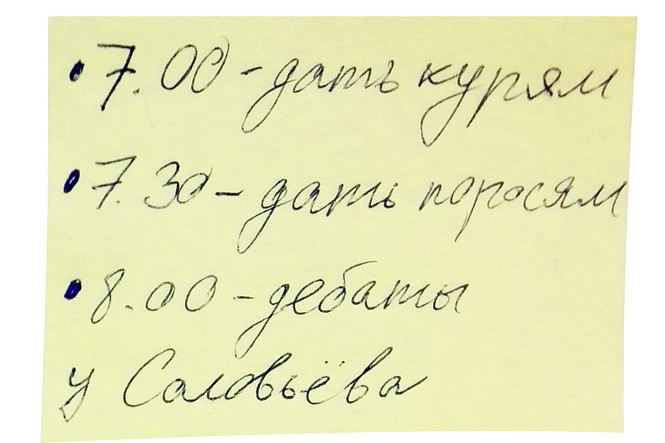 • 7.00 - дать курям
• 7.30 - дать поросям
• 8.00 - дебаты
у Соловьёва